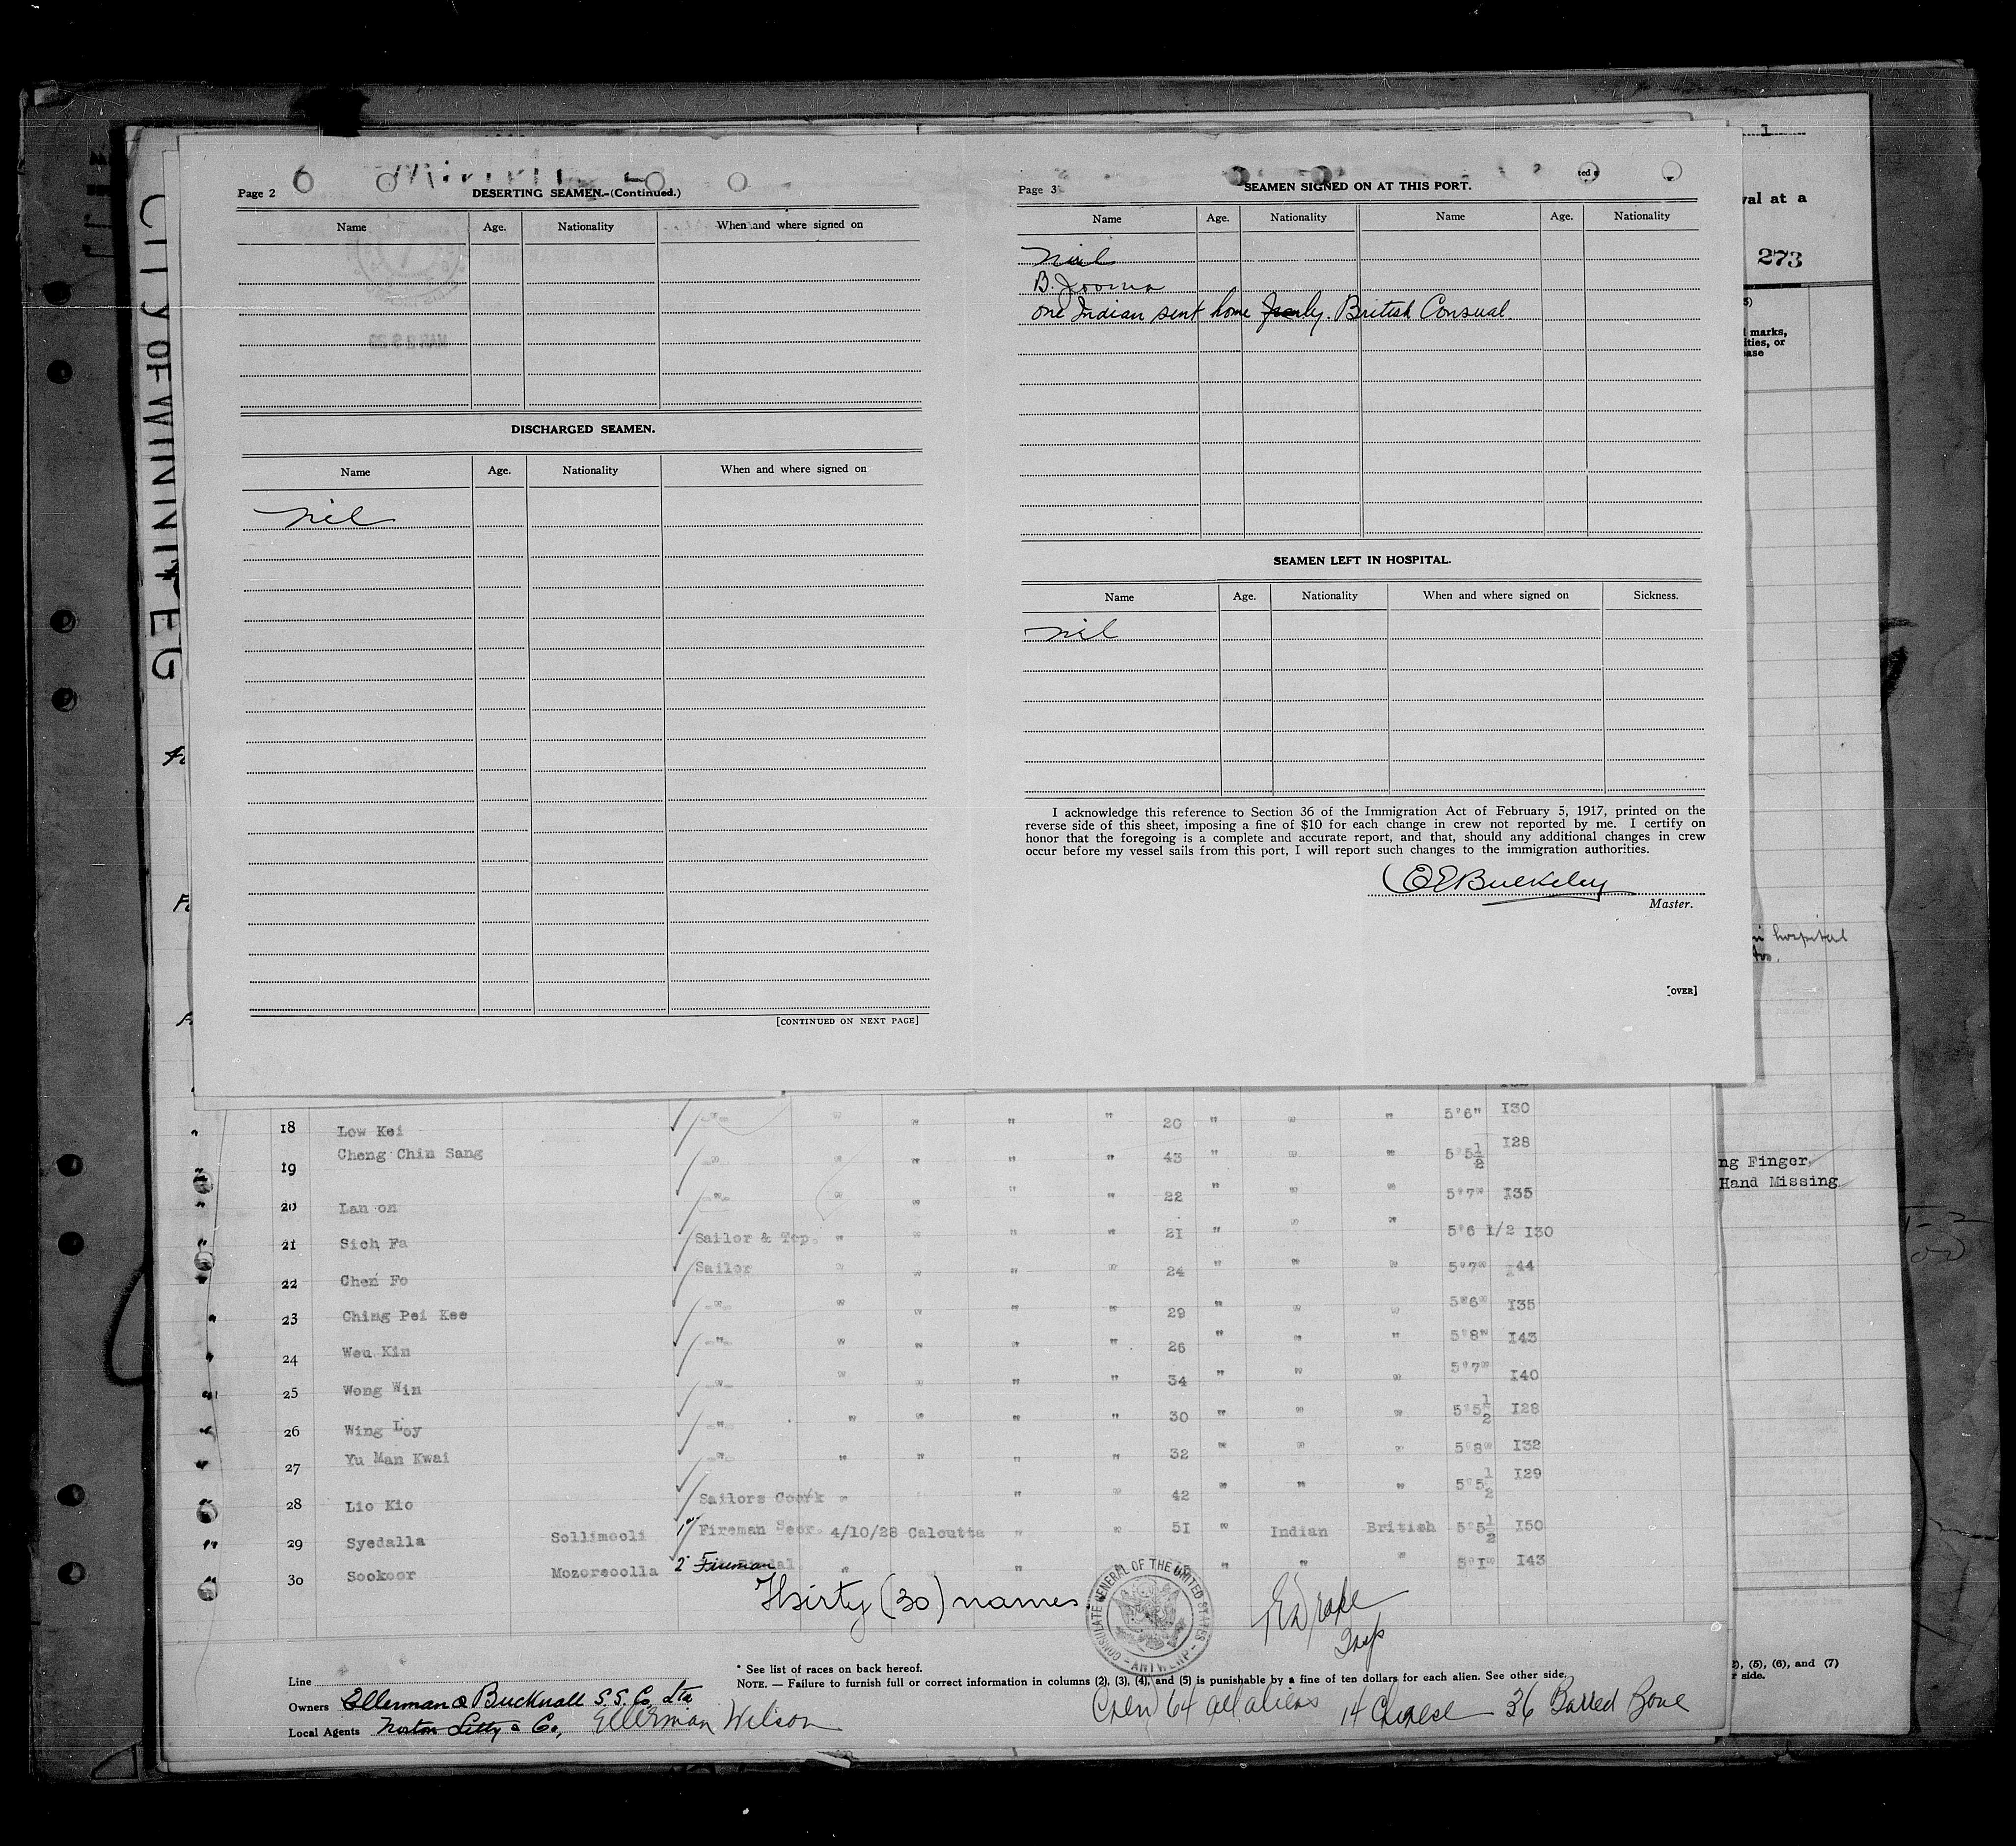 1
val at a
273
marks,
ities, or
ease
CITY OF WINNIPEG
Page 2
DESERTING SEAMEN.-(Continued.)
Name Age. Nationality When and where signed on
DISCHARGED SEAMEN.
Name Age. Nationality When and where signed on
nil
[CONTINUED ON NEXT PAGE]
Page 3
SEAMEN SIGNED ON AT THIS PORT.
Name Age. Nationality Name Age. Nationality
nil
B. Jooma
one Indian sent home by. British Consual
SEAMEN LEFT IN HOSPITAL.
Name Age. Nationality When and where signed on Sickness.
nil
I acknowledge this reference to Section 36 of the Immigration Act of February 5, 1917, printed on the
reverse side of this sheet, imposing a fine of $10 for each change in crew not reported by me. I certify on
honor that the foregoing is a complete and accurate report, and that, should any additional changes in crew
occur before my vessel sails from this port, I will report such changes to the immigration authorities.
E E Bulkeley
Master.
[OVER]
hospital
18 Low Kei " " " " " 20 " " " 5'6" 130
19 Cheng Chin Sang " " " " " 43 " " " 5'5 1/2 128
20 Lan on " " " " " 22 " " " 5'7" 135
21 Sich Fa Sailor & Top. " " " " 21 " " " 5'6 1/2 130
22 Chen Fo Sailor " " " " 24 " " " 5'7" 144
23 Ching Pei Kee " " " " " 29 " " " 5'6" 135
24 Weu Kin " " " " " 26 " " " 5'8" 143
25 Wong Win " " " " " 34 " " " 5'7" 140
26 Wing Loy " " " " " 30 " " " 5'5 1/2 128
27 Yu Man Kwai " " " " " 32 " " " 5'8" 132
28 Lio Kio Sailors Coork " " " 42 " " " 5'5 1/2 129
29 Syedalla Sollimooli 1" Fireman 4/10/28 Calcutta " " 51 " Indian British 5'5 1/2 150
30 Sookoor Mozorsoolla 2" Fireman " " " " " 5'1" 143
ng Finger,
Hand Missing
Thirty (30) names.
CONSULATE GENERAL OF THE UNITED STATES - ANTWERP -
E Drake
Insp
* See list of races on back hereof.
NOTE. — Failure to furnish full or correct information in columns (2), (3), (4), and (5) is punishable by a fine of ten dollars for each alien. See other side.
), (5), (6), and (7)
r side.
Line
Owners Ellerman & Bucknall S.S. Co, Ltd
Local Agents Norton Lilly & Co., Ellerman Wilson
Crew 64 all aliens 14 Chinese 36 Barred Zone